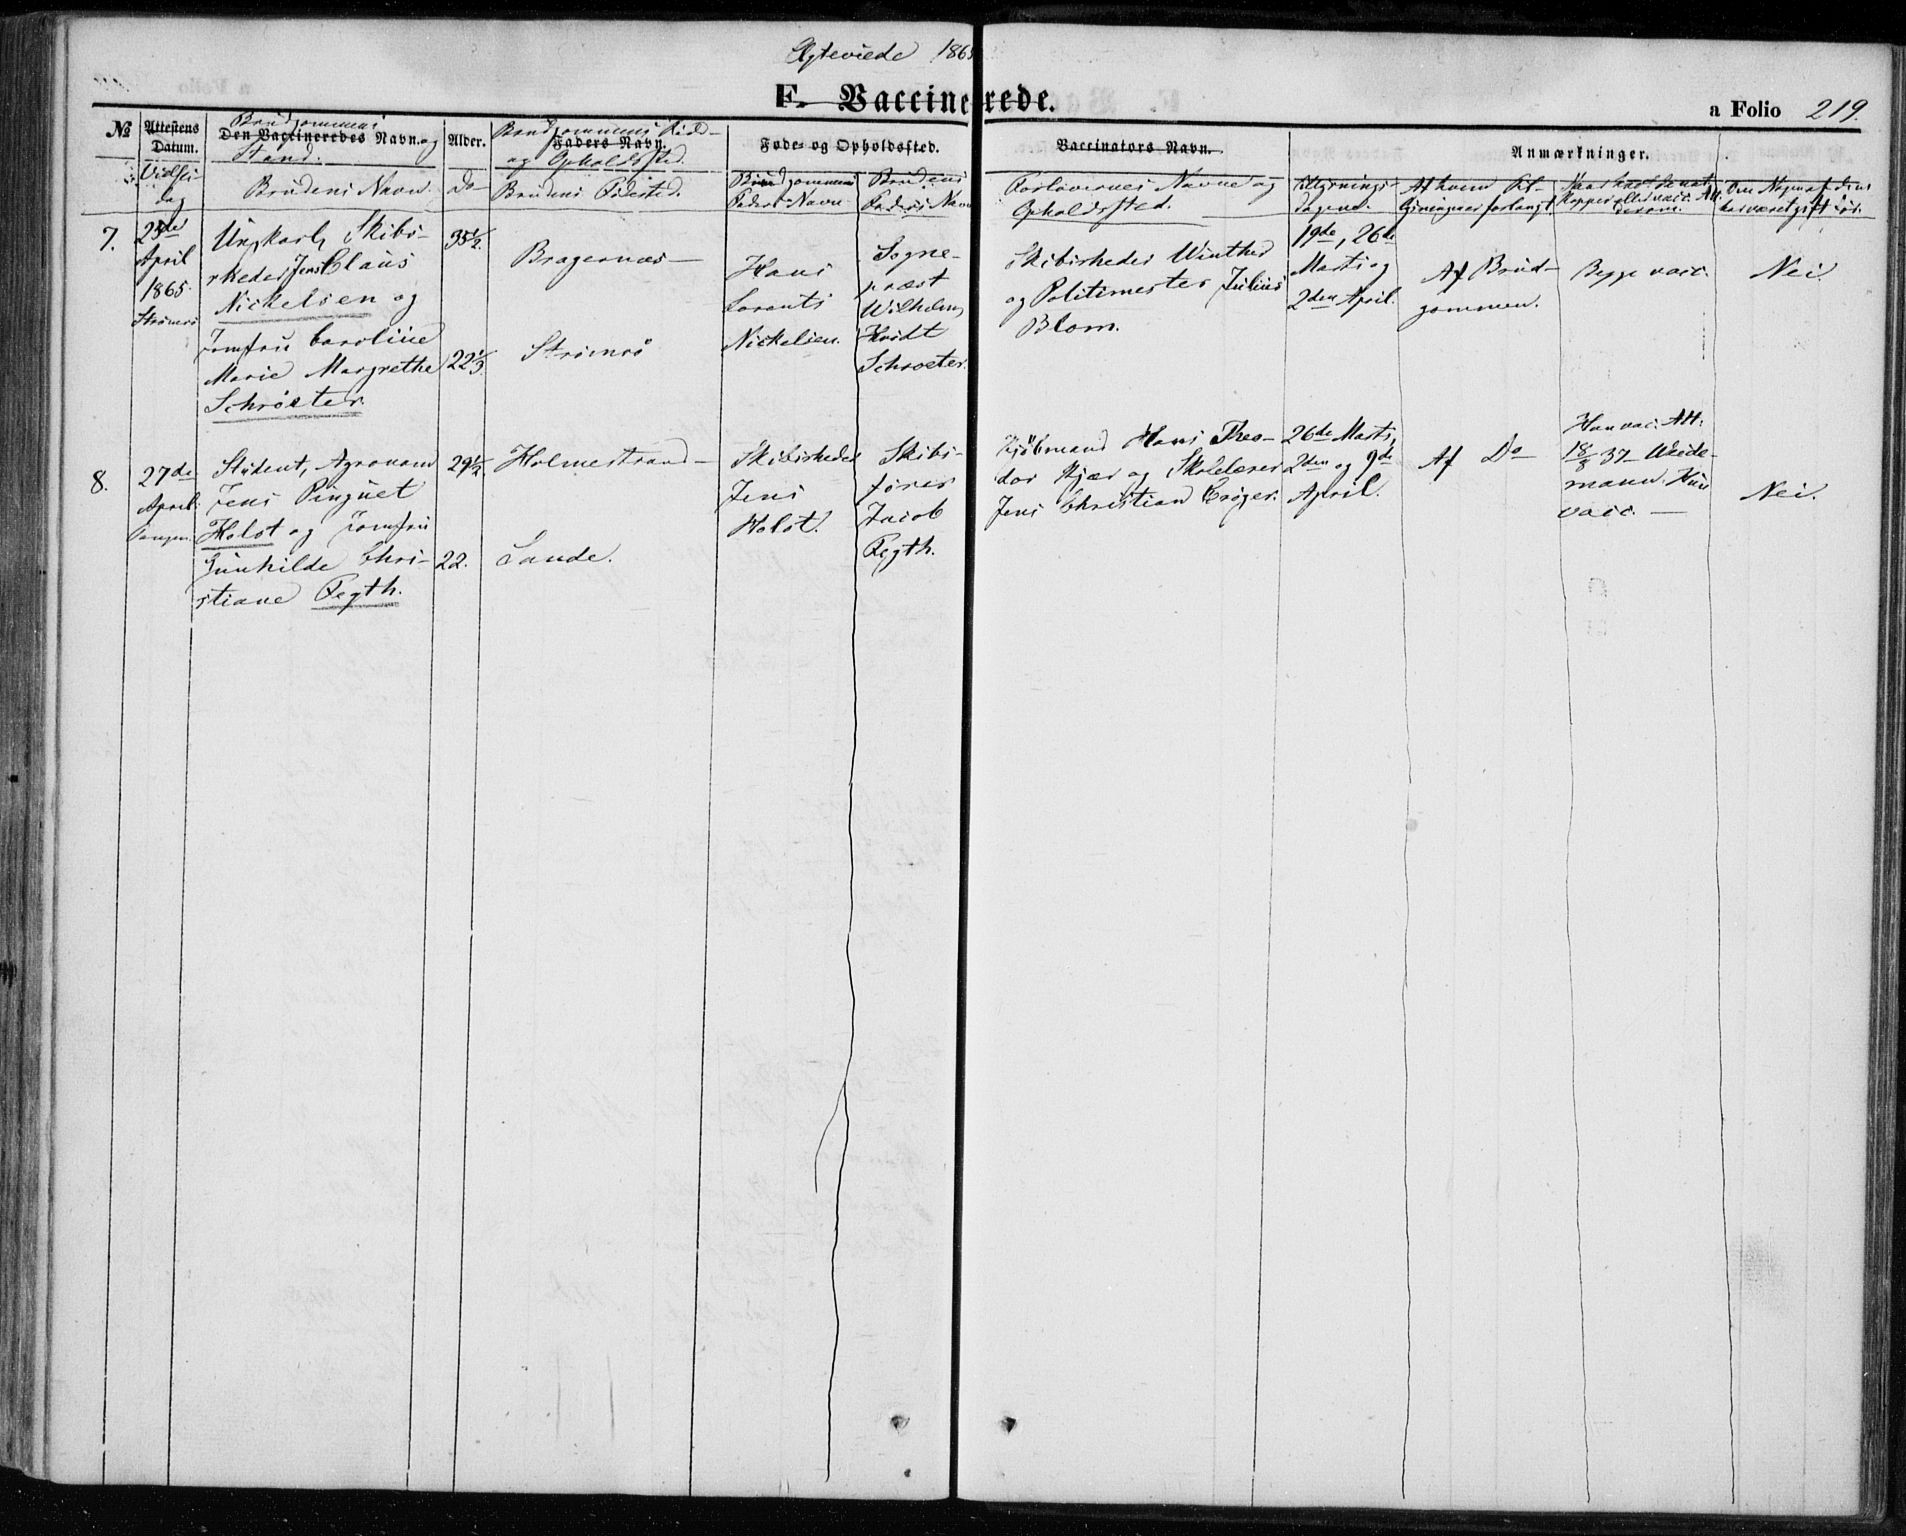 Ægteviede 1865
F. Vaccinerede.
a Folio 219.
No
Attestens Datum.
Brudgommens
Den Vaccineredes Navn og
Stand.
Alder.
Brudgommens Føde-
Faders Navn.
og Opholdssted.
Føde- og Opholdssted.
Vaccinators Navn.
Anmærkninger.
Vielses-
dag
Brudens Navn.
Do
Brudens Fødested.
Brudgommens
Faders Navn
Brudens
Faders Navn
Forlovernes Navne og
Opholdssted.
Tillysnings-
dagene.
Af hvem Til-
lysningen forlangt
Om Nogen af dem
har været gift før.
7.
25de
April
1865.
Strømsø
Ungkarl, Skibs-
rheder Jens Claus
Nickelsen og
Jomfru Caroline
Marie Margrethe
Schrøeter.
35 1/2.
22 1/3.
Bragernæs —
Strømsø
Hans
Lorents
Nickelsen.
Sogne-
præst
Wilhelm
Hvidt
Schroeter.
Skibsrheder Winther
og Politimester Julius
Blom.
19de, 26de
Marts og
2den April.
Af Brud-
gommen.
Begge vacc.
Nei
8.
27de
April.
Tangen.
Student, Agronom
Jens Pinquet
Holst og Jomfru
Gunhilde Chri-
stiane Fegth.
29 1/2.
22.
Holmestrand —
Sande.
Skibsrheder
Jens
Holst.
Skibs-
fører
Jacob
Fegth.
Kjøbmand Hans Theo-
dor Kjær og Skolelærer
Jens Christian Crøger.
26de Marts,
2den og 9de
April.
Af Do
Han vac. Att.
18/8 37 Weide-
mann. Hun
vacc. —
Nei.